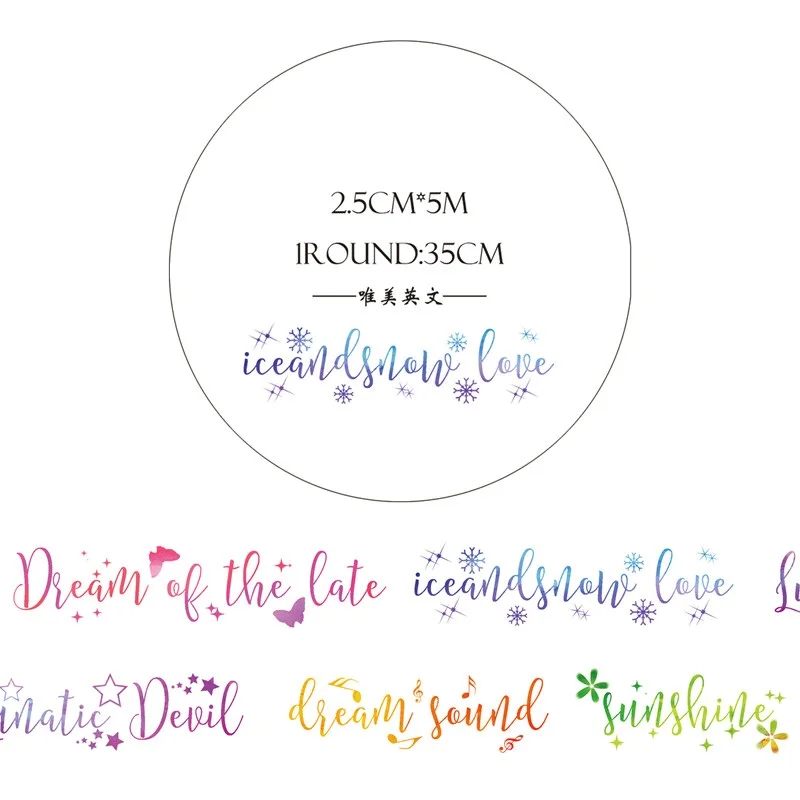 2.5CM*5M
1ROUND:35CM
唯美英文
iceandsnow love
Dream of the late
iceandsnow love
Lu
natic Devil
dream sound
sunshine